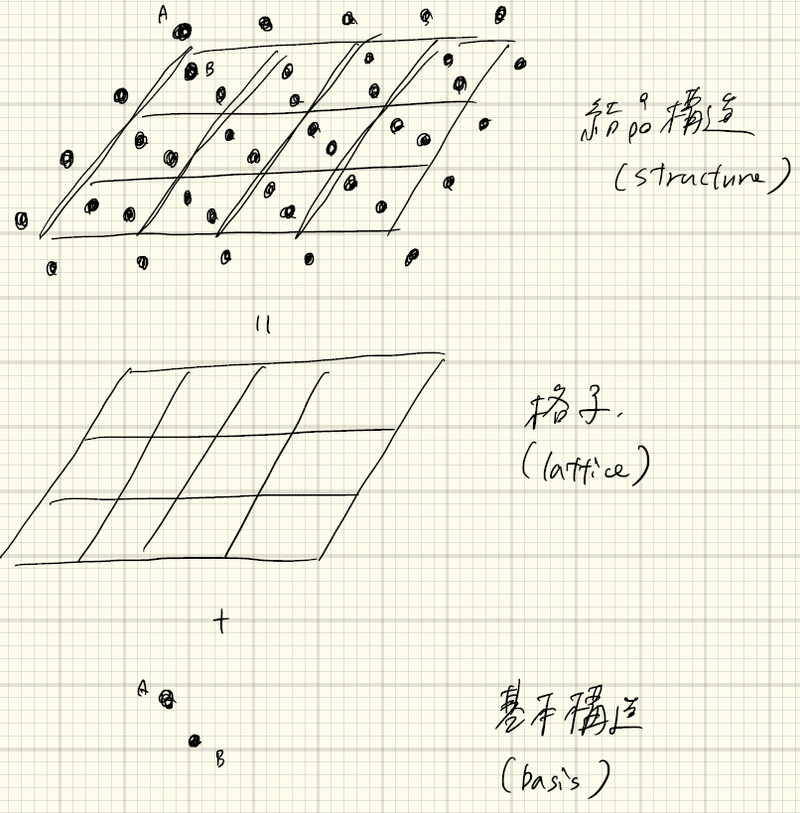 A
B
結晶構造
(structure)
=
格子.
(lattice)
+
A
B
基本構造
(basis)